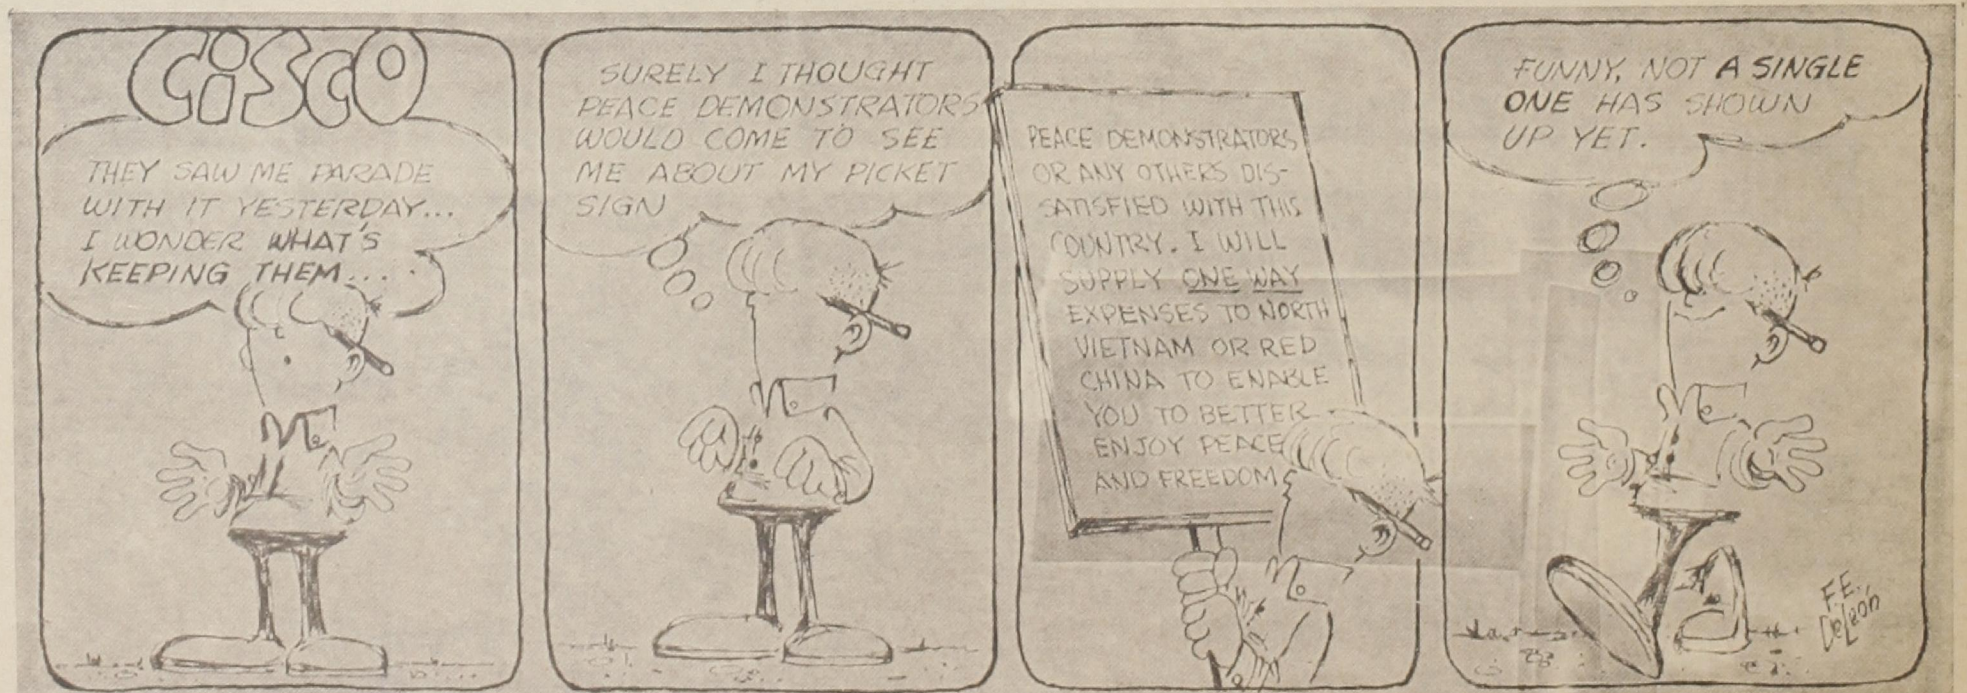 CISCO
THEY SAW ME PARADE
WITH IT YESTERDAY...
I WONDER WHAT'S
KEEPING THEM...
SURELY I THOUGHT
PEACE DEMONSTRATORS
WOULD COME TO SEE
ME ABOUT MY PICKET
SIGN
PEACE DEMONSTRATORS
OR ANY OTHERS DIS-
SATISFIED WITH THIS
COUNTRY. I WILL
SUPPLY ONE WAY
EXPENSES TO NORTH
VIETNAM OR RED
CHINA TO ENABLE
YOU TO BETTER
ENJOY PEACE
AND FREEDOM
FUNNY, NOT A SINGLE
ONE HAS SHOWN
UP YET.
F.E.
DeLeón